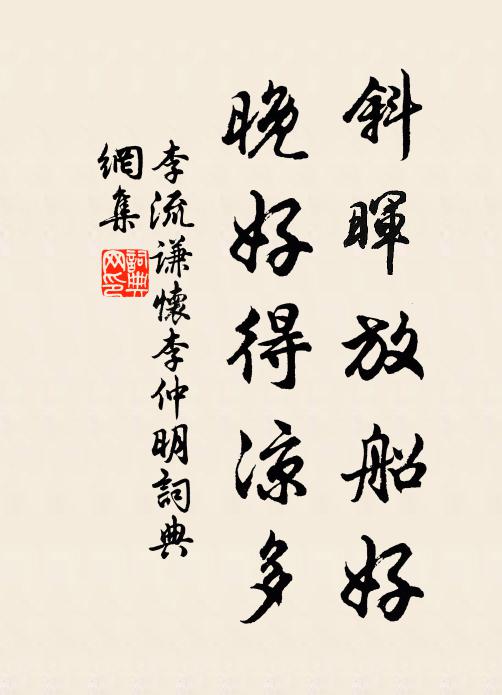 斜暉放船好
晚好得涼多
李流謙懷李仲明詞典
網集
詞典网印